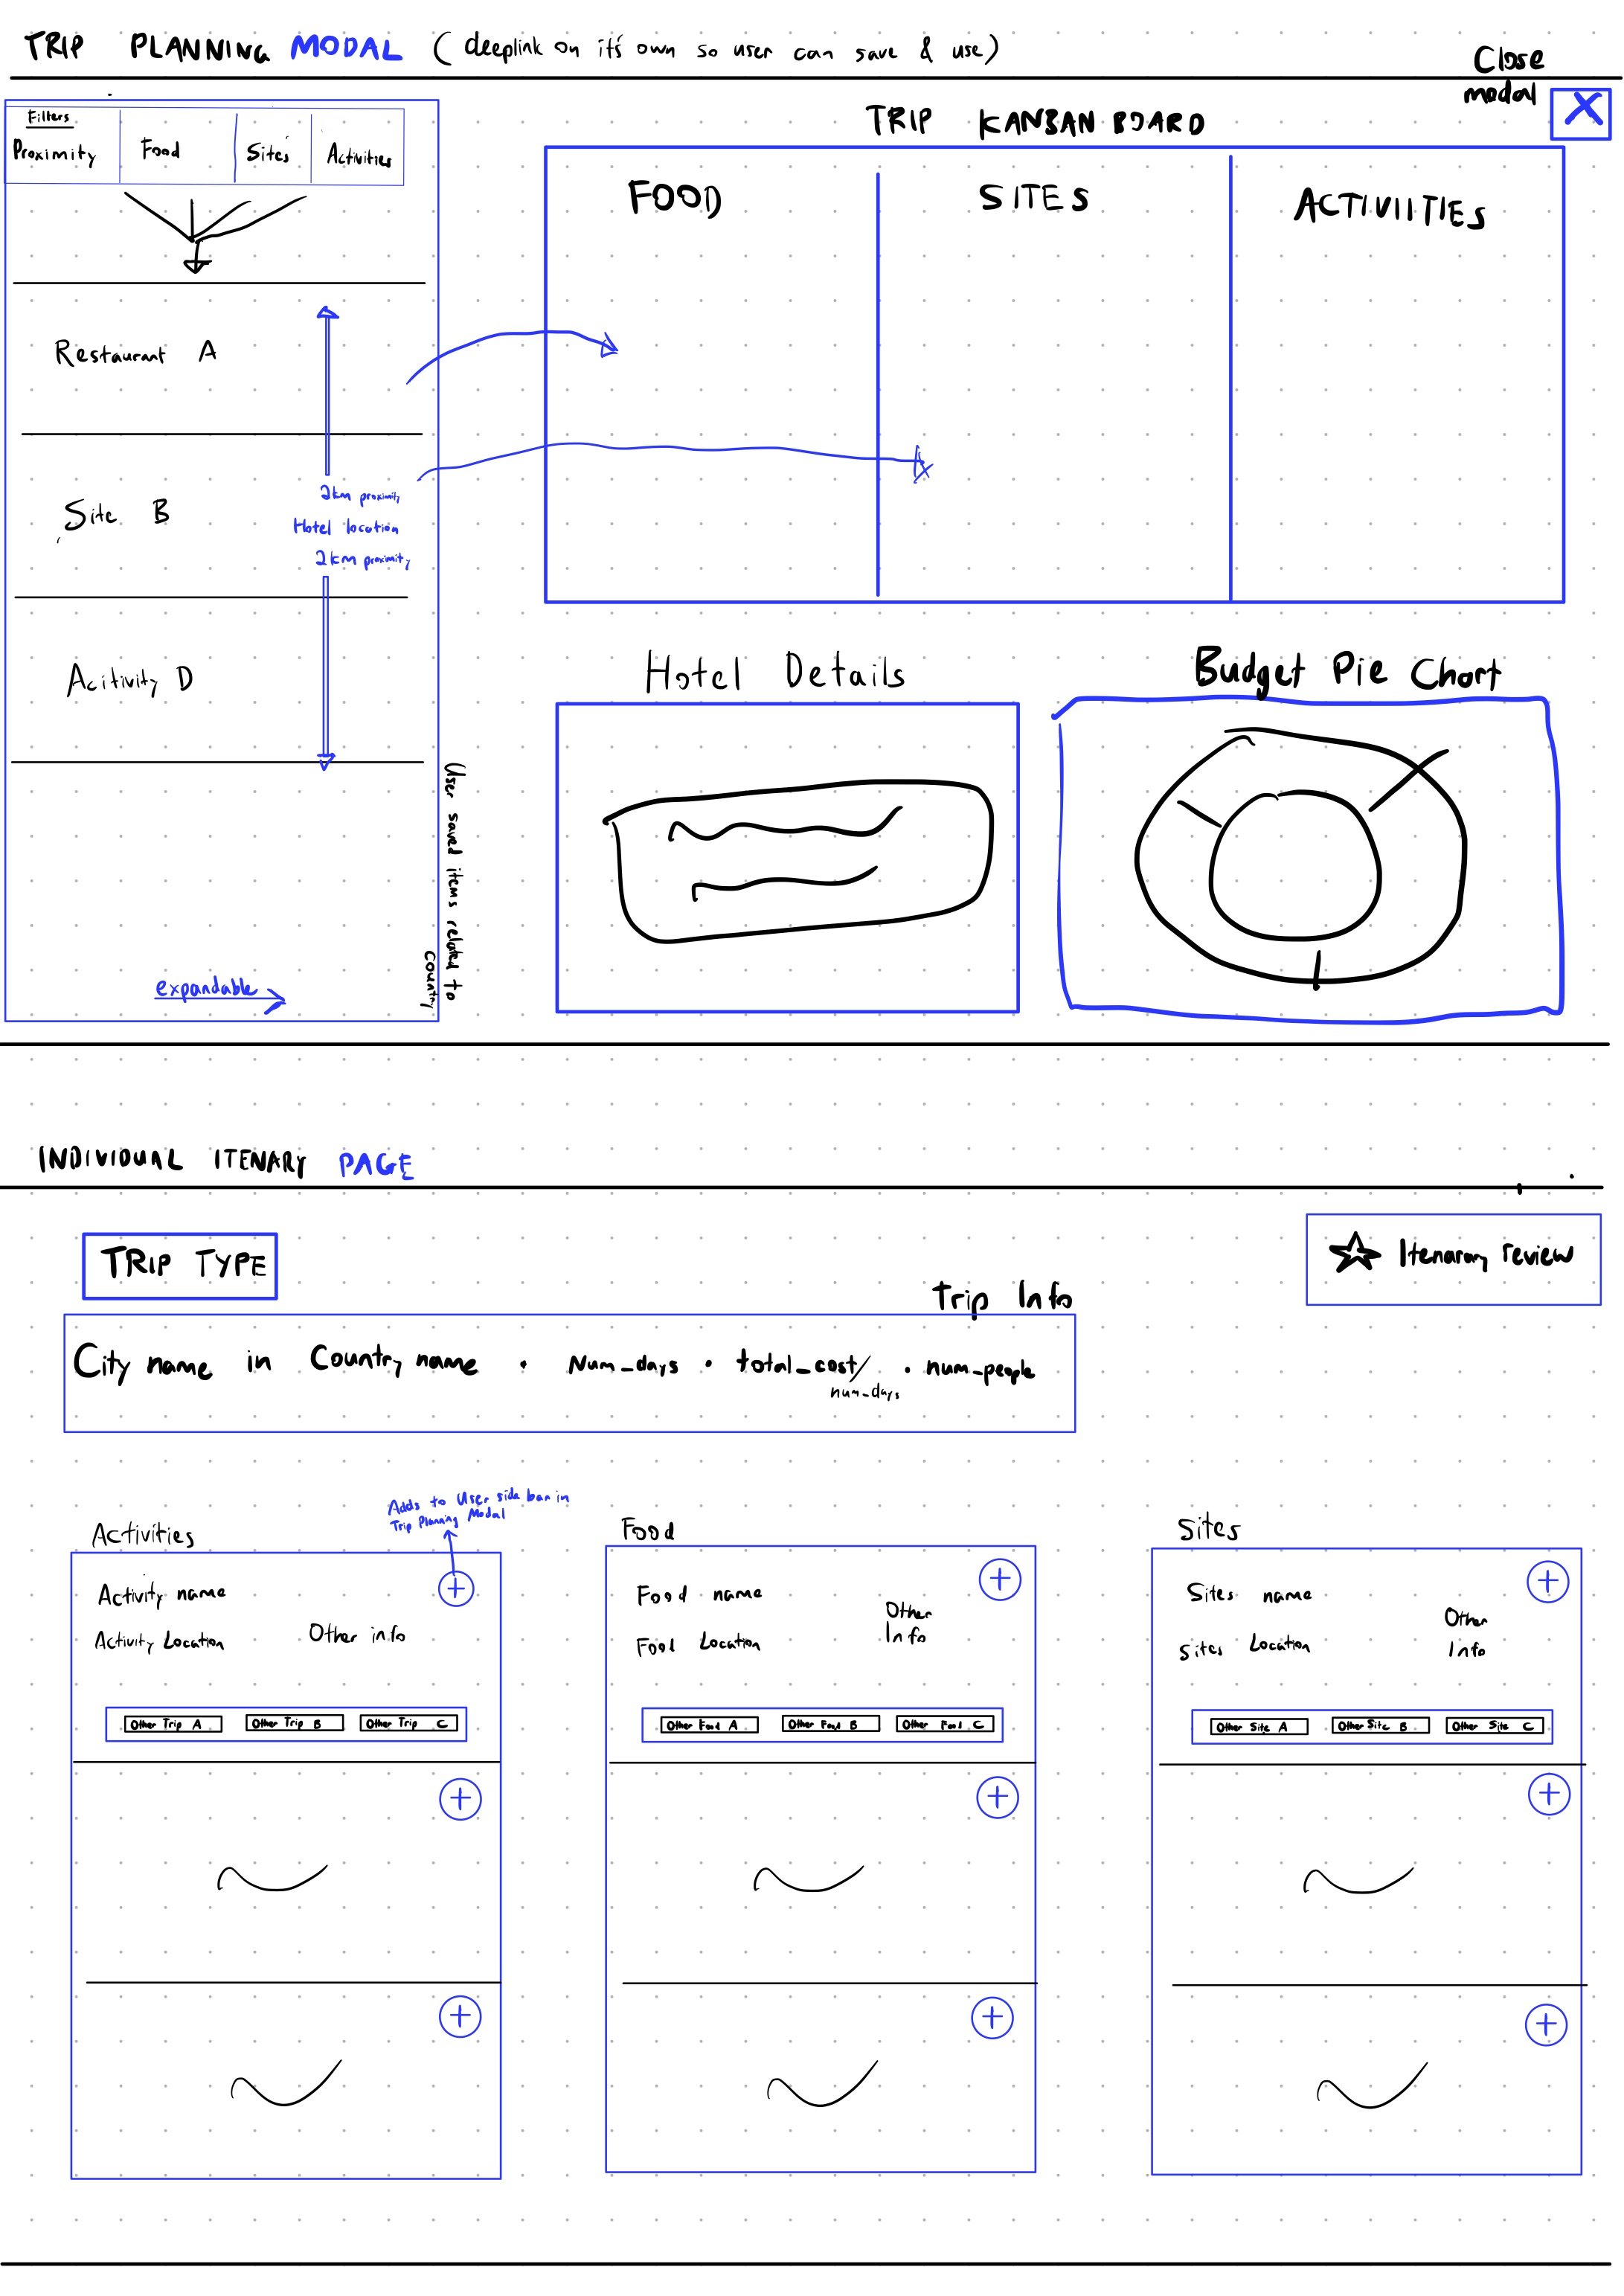 TRIP PLANNING MODAL (deeplink on it's own so user can save & use)
Close
modal
X
Filters
Proximity
Food
Sites
Activities
TRIP KANBAN BOARD
FOOD
SITES
ACTIVIITIES
Restaurant A
Site B
2km proximity
Hotel location
2km proximity
Acitivity D
User saved items related to
country
expandable
Hotel Details
Budget Pie Chart
INDIVIDUAL ITENARY PAGE
TRIP TYPE
Itenarary review
Trip Info
City name in Country name • Num_days • total_cost/
num_days
• num_people
Adds to User side bar in
Trip Planning Modal
Activities
Activity name
Activity Location
Other info
+
Other Trip A
Other Trip B
Other Trip C
+
+
Food
Food name
Food Location
Other
Info
+
Other Food A
Other Food B
Other Food C
+
+
Sites
Sites name
Sites Location
Other
Info
+
Other Site A
Other Site B
Other Site C
+
+